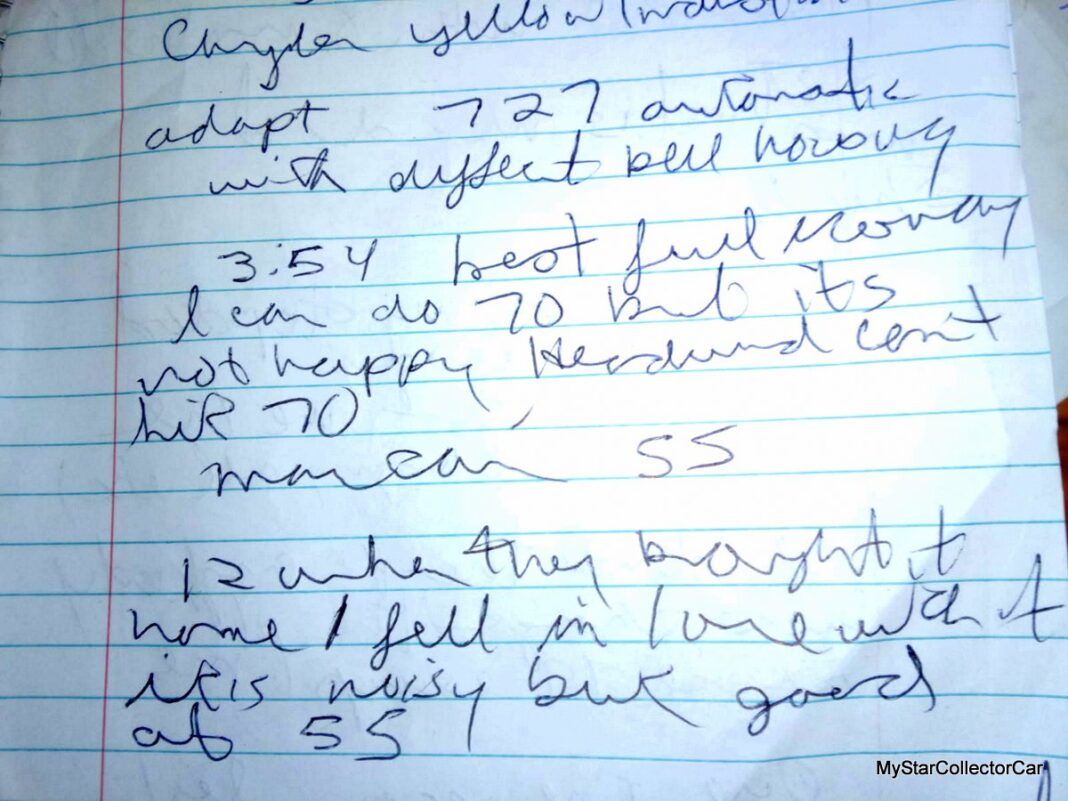 Chrysler yellow
adapt 727 automatic
with different bell housing
3:54 best fuel economy
I can do 70 but its
not happy can't
hit 70
55
12 when they brought it
home I fell in love with it
it is noisy but good
at 55
MyStarCollectorCar